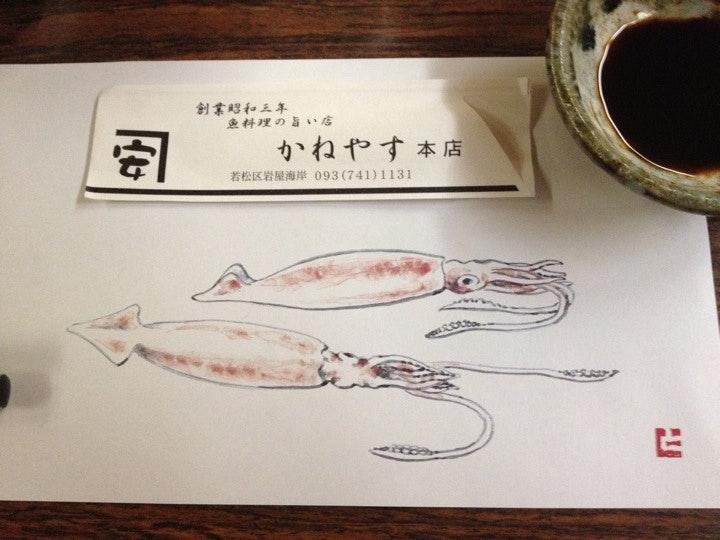 創業昭和三年
魚料理の旨い店
安
かねやす本店
若松区岩屋海岸 093(741)1131